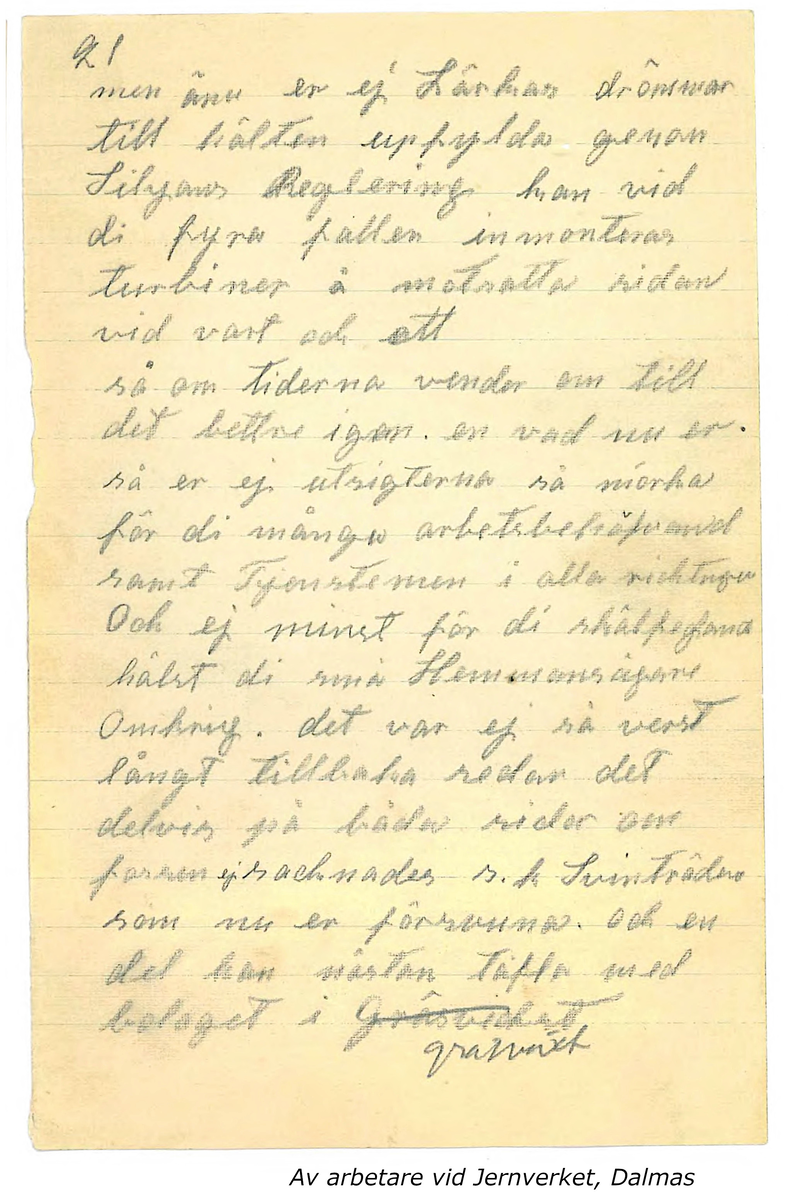 21
men änu er ej Lärkas drömmar
till hälten upfylda genom
Siljans Reglering kan vid
di fyra fallen inmonteras
turbiner å motsatta sidan
vid vart och ett
så om tiderna vender om till
det bettre igen. en vad nu er.
så er ej utsigterna så mörka
för di många arbetsbehöfvand
samt Tjenstemen i alla
Och ej minst för di
hälst di små Hemmansägare
Omkrig. det var ej så verst
långt tillbaka sedan det
delvis på båda sidor om
forsen ej sacknades s.k Svinträdor
som nu er försvuna. och en
del kan nästan täfla med
bolaget i Gräsvickst
gräsväxt
Av arbetare vid Jernverket, Dalmas